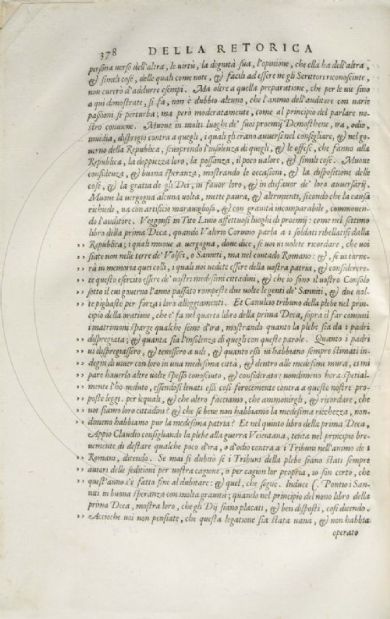 378 DELLA RETORICA
persona verso dell'altra, le virtù, la dignità sua, l'opinione, che ella ha dell'altra,
& simili cose, delle quali come note, & facili ad essere ne gli Scrittori riconosciute,
non curerò d'addurre esempi. Ma oltre a quella preparatione, che per le vie sino
a qui dimostrate, si fa, non è dubbio alcuno, che l'animo dell'auditore con varie
passioni si perturba, ma però moderatamente, come al principio del parlare no-
stro conviene. Muove in molti luoghi de' suoi proemij Demosthene, ira, odio,
invidia, dispregio contra a quegli, i quali gli erano avversi nel consigliare, & nel go-
verno della Republica, scoprendo l'insolenza di quegli, & le offese, che fanno alla
Republica, la doppiezza loro, la possanza, il poco valore, & simili cose. Muove
confidenza, & buona speranza, mostrando le occasioni, & la dispositione delle
cose, & la gratia de gli Dei, in favor loro, & in disfavor de' loro avversarij.
Muove la vergogna alcuna volta, mette paura, & altrimenti, secondo che la causa
richiede, va con artificio maraviglioso, & con gravità incomparabile, commoven-
do l'auditore. Veggonsi in Tito Livio affettuosi luoghi di proemij: come nel settimo
libro della prima Deca, quando Valerio Corvino parla a i soldati ribellatisi dalla
Republica; i quali muove a vergogna, dove dice, se voi vi volete ricordare, che voi
siate non nelle terre de' Volsci, o Sanniti, ma nel contado Romano: & se vi torne-
rà in memoria que colli, i quali voi vedete essere della vostra patria, & considerere-
te questo esercito essere de' vostri medesimi cittadini, & che io sono il vostro Consolo
sotto il cui governo l'anno passato rompeste due volte le genti de' Sanniti, & due vol-
te pigliaste per forza i loro alloggiamenti. Et Canuleio tribuno della plebe nel prin-
cipio della oratione, che e' fa nel quarto libro della prima Deca, sopra il far comuni
i matrimoni sparge qualche seme d'ira, mostrando quanto la plebe sia da i padri
dispregiata; & quanta sia l'insolenza di quegli con queste parole. Quanto i padri
vi dispregiassero, & tenessero a vile, & quanto essi vi habbiano sempre stimati in-
degni di viver con loro in una medesima città, & dentro alle medesime mura, ci mi
pare haverlo altre volte spesso conosciuto, & considerato: nondimeno hora spetial-
mente l'ho veduto, essendosi levati essi così ferocemente contra a queste nostre pro-
poste leggi. per le quali, & che altro facciamo, che ammonirgli, & ricordare, che
noi siamo loro cittadini? & che se bene non habbiamo la medesima ricchezza, non-
dimeno habbiamo pur la medesima patria? Et nel quinto libro della prima Deca,
Appio Claudio consigliando la plebe alla guerra Veientana, tenta nel principio bre-
vemente di destare qualche poco d'ira, o d'odio contra i Tribuni nell'animo de i
Romani, dicendo. Se mai si dubitò se i Tribuni della plebe siano stati sempre
autori delle seditioni per vostra cagione, o per cagion lor propria, io son certo, che
quest'anno s'è fatto fine al dubitare: & quel, che segue. Induce C. Pontio i San-
niti in buona speranza con molta gravità; quando nel principio del nono libro della
prima Deca, mostra loro, che gli Dij siano placati, & ben disposti, così dicendo.
Acciochè voi non pensiate, che questa legatione sia stata vana, & non habbia
operato